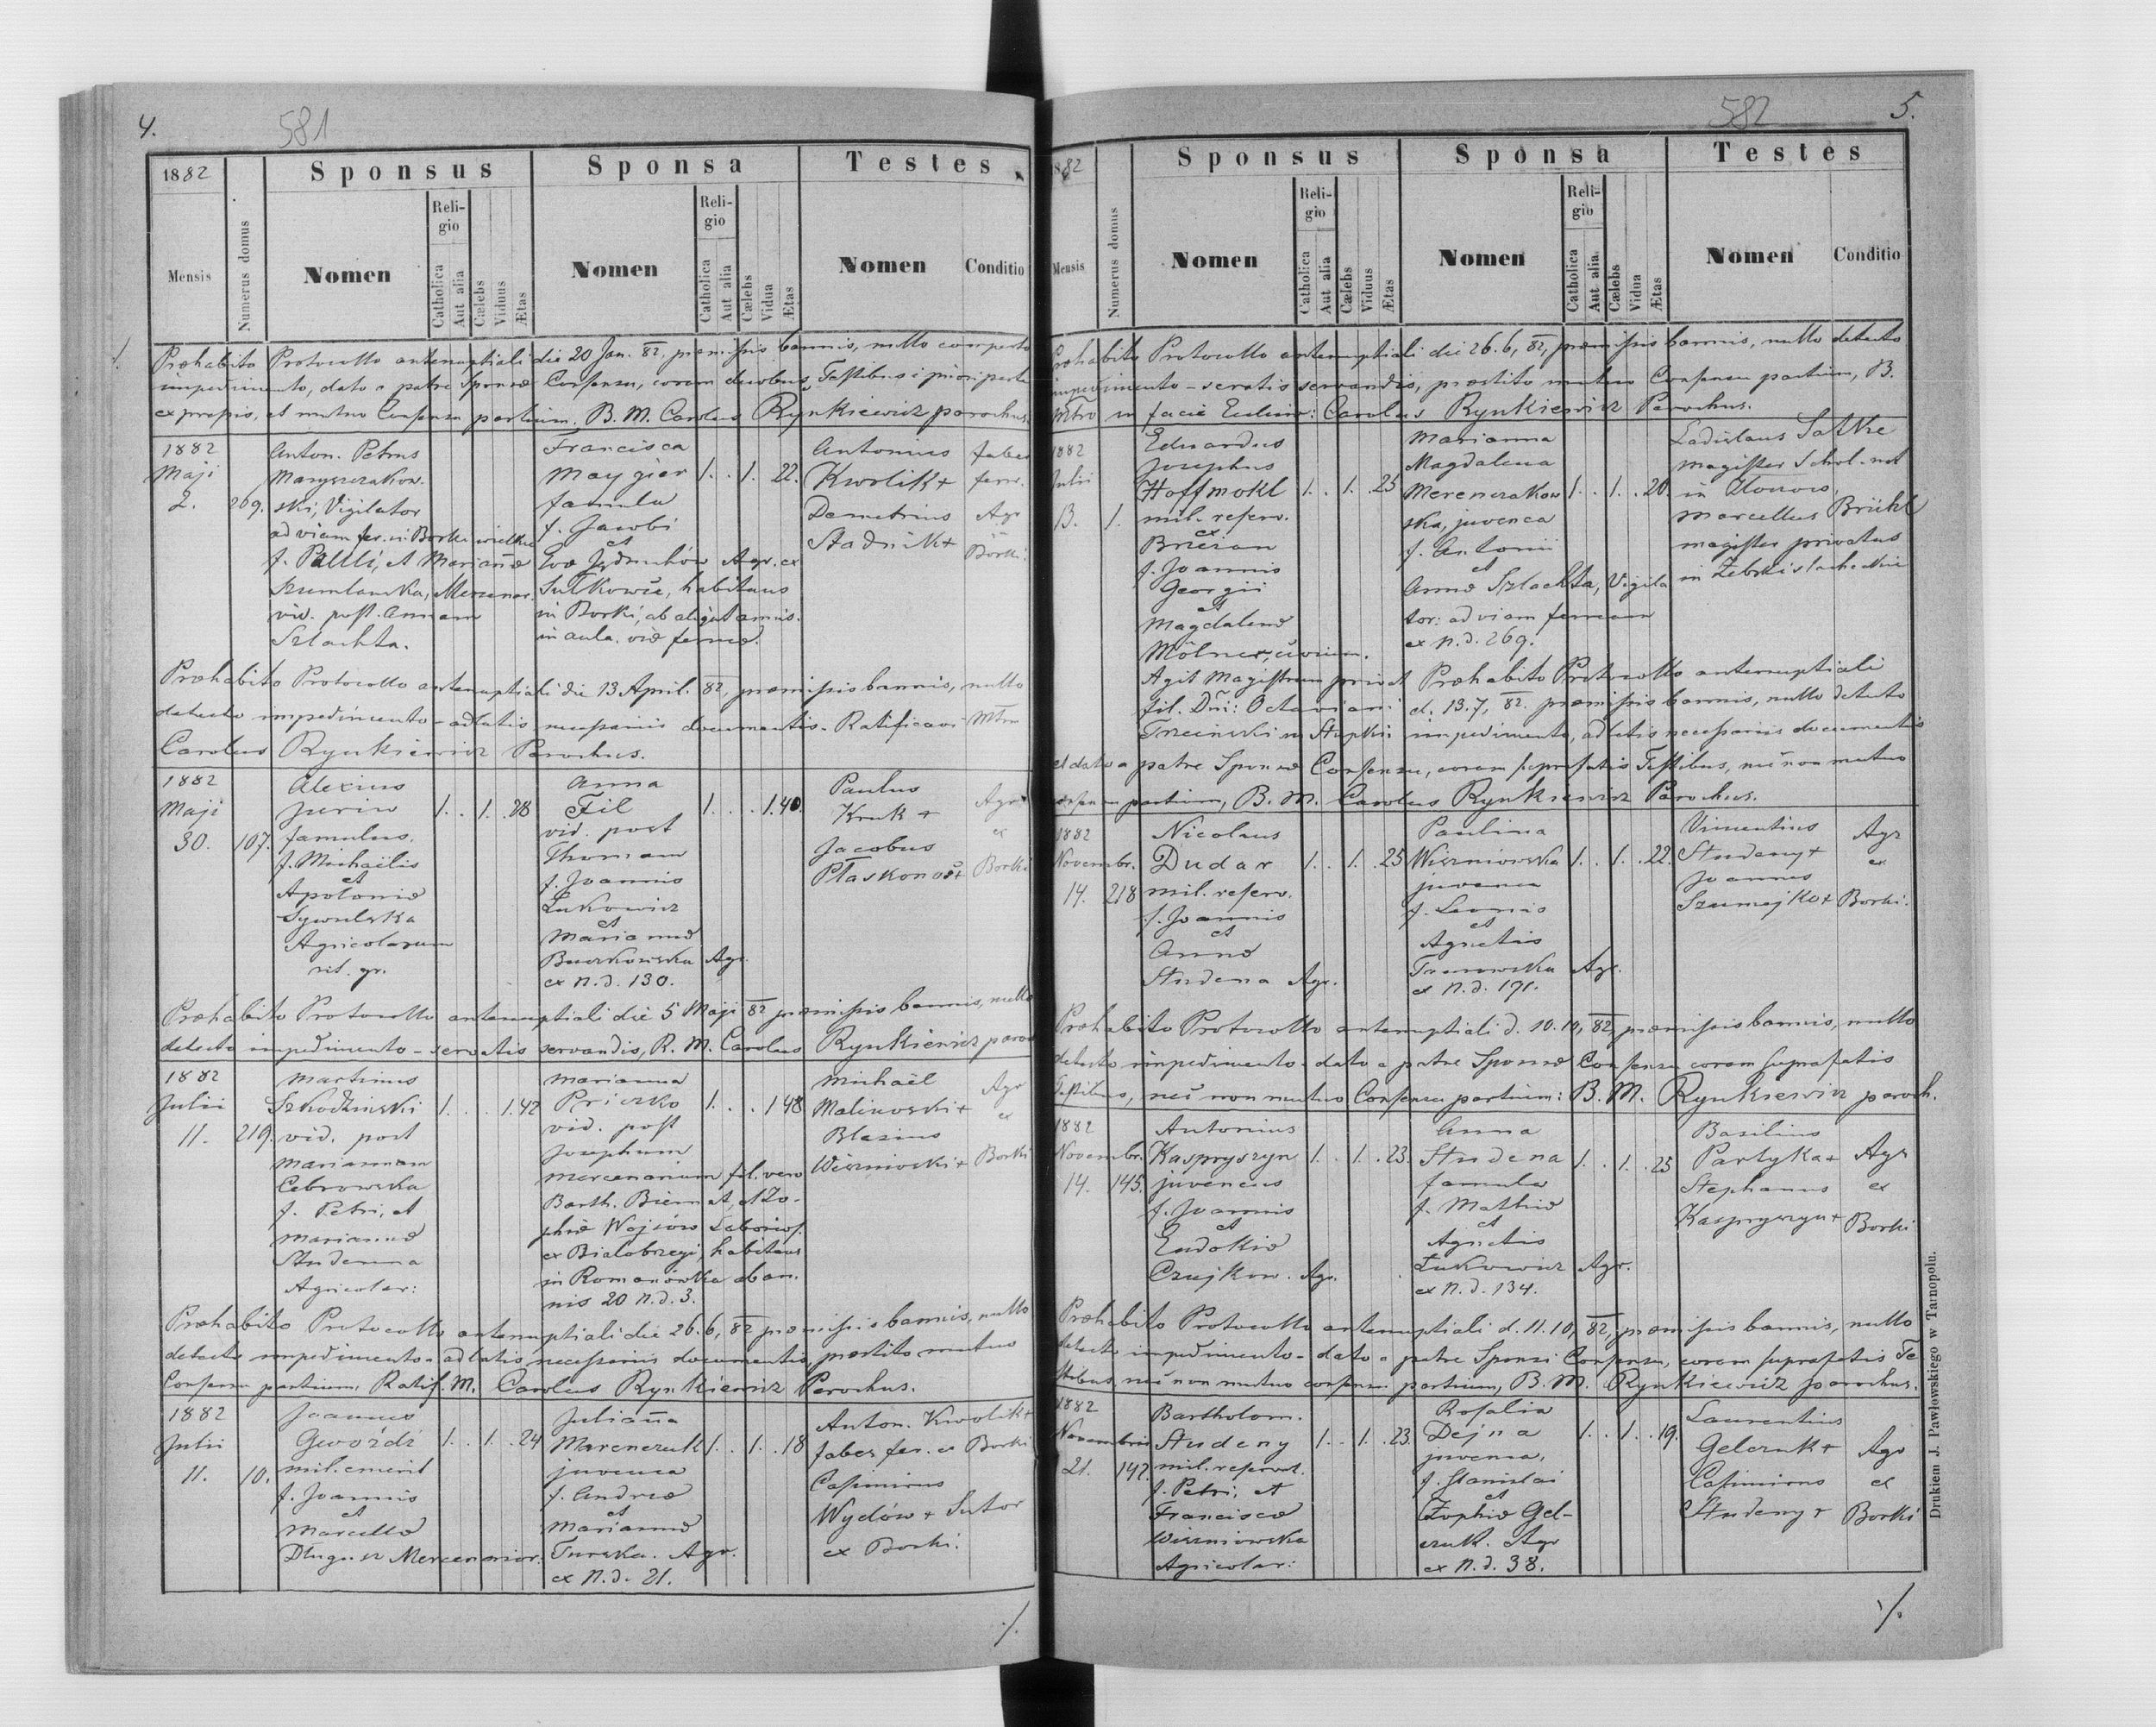 4.
581
1882
Sponsus
Sponsa
Testes
Mensis
Numerus domus
Nomen
Religio
Catholica
Aut alia
Cælebs
Viduus
Ætas
Nomen
Religio
Catholica
Aut alia
Cælebs
Vidua
Ætas
Nomen
Conditio
Præhabito Protocollo antenuptiali die 20 Jan. 82, præmissis bannis, nullo comperto
impedimento, dato a patre Sponsæ Consensu, coram duobus Testibus
et mutuo Consensu partium. B. M. Carolus Rynkiewicz parochus.
1882
Maji
2.
269.
Anton. Petrus
Maryszczakow-
ski, Vigilator
ad viam fer. in Borki wielkie
f. Pauli, et Mariañæ
Szumlanska, Mercenar.
vid. post. Annam
Szlachta.
Francisca
Maygier
famula
f. Jacobi
et
Evæ Agr. ex
Sutkowie, habitans
in Borki, ab aliquot annis.
in aula. viæ ferreæ.
1. . 1. 22.
Antonius
Kwolik +
Demetrius
Stadnik +
faber
ferr.
Agr
Borki
Præhabito Protocollo antenuptiali die 13 April. 82, præmissis bannis, nullo
detecto impedimento - adlatis necessariis documentis. Ratificavi Mtrm
Carolus Rynkiewicz Parochus.
1882
Maji
30.
107.
Alexius
Juriw
famulus.
f. Michaëlis
et
Apoloniæ
Sywulska
Agricolarum
rit. gr.
1. . 1. .28
Anna
Fil
vid. post
Thomam
f. Joannis
Łukowicz
et
Mariannæ
Buczkowska Agr.
ex N.d. 130.
1. . . 1.40.
Paulus
Kruk +
Jacobus
Płaskonoś +
Agr
ex
Borki
Præhabito Protocollo antenuptiali die 5 Maji 82 præmissis bannis, nullo
detecto impedimento - servatis servandis, R. M. Carolus Rynkiewicz paroch
1882
Julii
11.
219.
Martinus
Szkodziński
vid. post
Mariannam
Cebrowska
f. Petri, et
Mariannæ
Studenna
Agricolar:
1. . . 1.42
Marianna
Priczko
vid. post
Josephum
mercenarium fil. vero
Barth. Biernat, et Zo-
phiæ Wojsów Laborios.
ex Bialobrzegi, habitans
in Romanówka ab an-
nis 20 N.d. 3.
1. . . 1 48
Michaël
Malinowski +
Blasius
Wiszniowski +
Agr
ex
Borki
Præhabito Protocollo antenuptiali die 26.6, 82 præmissis bannis, nullo
detecto impedimento - adlatis necessariis documentis, præstito mutuo
Consensu partium, Ratif. M. Carolus Rynkiewicz Parochus.
1882
Julii
11.
10.
Joannes
Gwoźdź
mil. emerit
f. Joannis
et
Marcellæ
Długosz Mercenarior.
1. . 1. .24
Juliañna
Marenczuk
juvenca
f. Andreæ
et
Mariannæ
Turska. Agr.
ex N.d. 21.
1. . 1. .18
Anton. Kwolik +
faber fer. ex Borki
Casimirus
Wydów + Sutor
ex Borki.
./.
582
5.
1882
Sponsus
Sponsa
Testes
Mensis
Numerus domus
Nomen
Religio
Catholica
Aut alia
Cælebs
Viduus
Ætas
Nomen
Religio
Catholica
Aut alia.
Cælebs
Vidua
Ætas
Nomen
Conditio
Præhabito Protocollo antenuptiali die 26.6, 82, præmissis bannis, nullo detecto
impedimento - servatis servandis, præstito mutuo Consensu partium, B.
Mtrm in facie Carolus Rynkiewicz Parochus.
1882
Julii
1.
Eduardus
Josephus
Hoffmokl
mil. reserv.
ex
Brzezan
f. Joannis
Georgii
et
Magdalenæ
Mölner, civium.
Agit Magistrum privat
fil. Dñi: Octaviani
in Stupki
1. . 1. .25
Marianna
Magdalena
Merenczakow
ska, juvenca
f. Antonii
et
Annæ Szlachta, Vigila
tor: ad viam ferream
ex N.d. 269.
1. . 1. .20.
Ladislaus Satke
magister Schol.
in
Marcellus Brückl
magister privatus
in
Præhabito Protocollo antenuptiali
d. 13.7, 82. præmissis bannis, nullo detecto
impedimento, adlatis necessariis documentis
et dato a patre Sponsæ Consensu, coram suprafatis Testibus, nec non mutuo
consensu partium, B. M. Carolus Rynkiewicz Parochus.
1882
Novembr.
14.
218
Nicolaus
Dudar
mil. reserv.
f. Joannis
et
Annæ
Studena Agr.
1. . 1. .25
Paulina
Wiszniowska
juvenca
f. Leonis
et
Agnetis
Agr.
ex N.d. 191.
1. . 1. .22.
Vincentius
Studeny +
Joannes
Szumejko +
Agr
ex
Borki.
Præhabito Protocollo antenuptiali d. 10.10, 82, præmissis bannis, nullo
detecto impedimento - dato a patre Sponsæ Consensu coram suprafatis
Testibus, nec non mutuo Consensu partium: B. M. Rynkiewicz paroch.
1882
Novembr.
14.
145.
Antonius
Kaspryszyn
juvencus
f. Joannis
et
Eudokiæ
Czujkow. Agr.
1. . 1. .23.
Anna
Studena
famula
f. Mathiæ
et
Agnetis
Łukowicz Agr.
ex N.d. 134.
1. . 1. .25
Basilius
Partyka +
Stephanus
Kaspryszyn +
Agr
ex
Borki
Præhabito Protocollo antenuptiali d. 11.10, 82, præmissis bannis, nullo
detecto impedimento - dato a patre Sponsi Consensu, coram suprafatis Te
stibus, nec non mutuo consensu partium, B. M. Rynkiewicz parochus.
1882
Novembris
21.
142.
Bartholom.
Studeny
mil. reservat.
f. Petri, et
Franciscæ
Wiszniowska
Agricolar:
1. . 1. .23.
Rosalia
Dejna
juvenca,
f. Stanislai
et
Zophiæ Gel-
czuk. Agr
ex N.d. 38.
1. . 1. .19.
Laurentius
Gelczuk +
Casimirus
Studeny +
Agr
ex
Borki
Drukiem J. Pawłowskiego w Tarnopolu.
./.